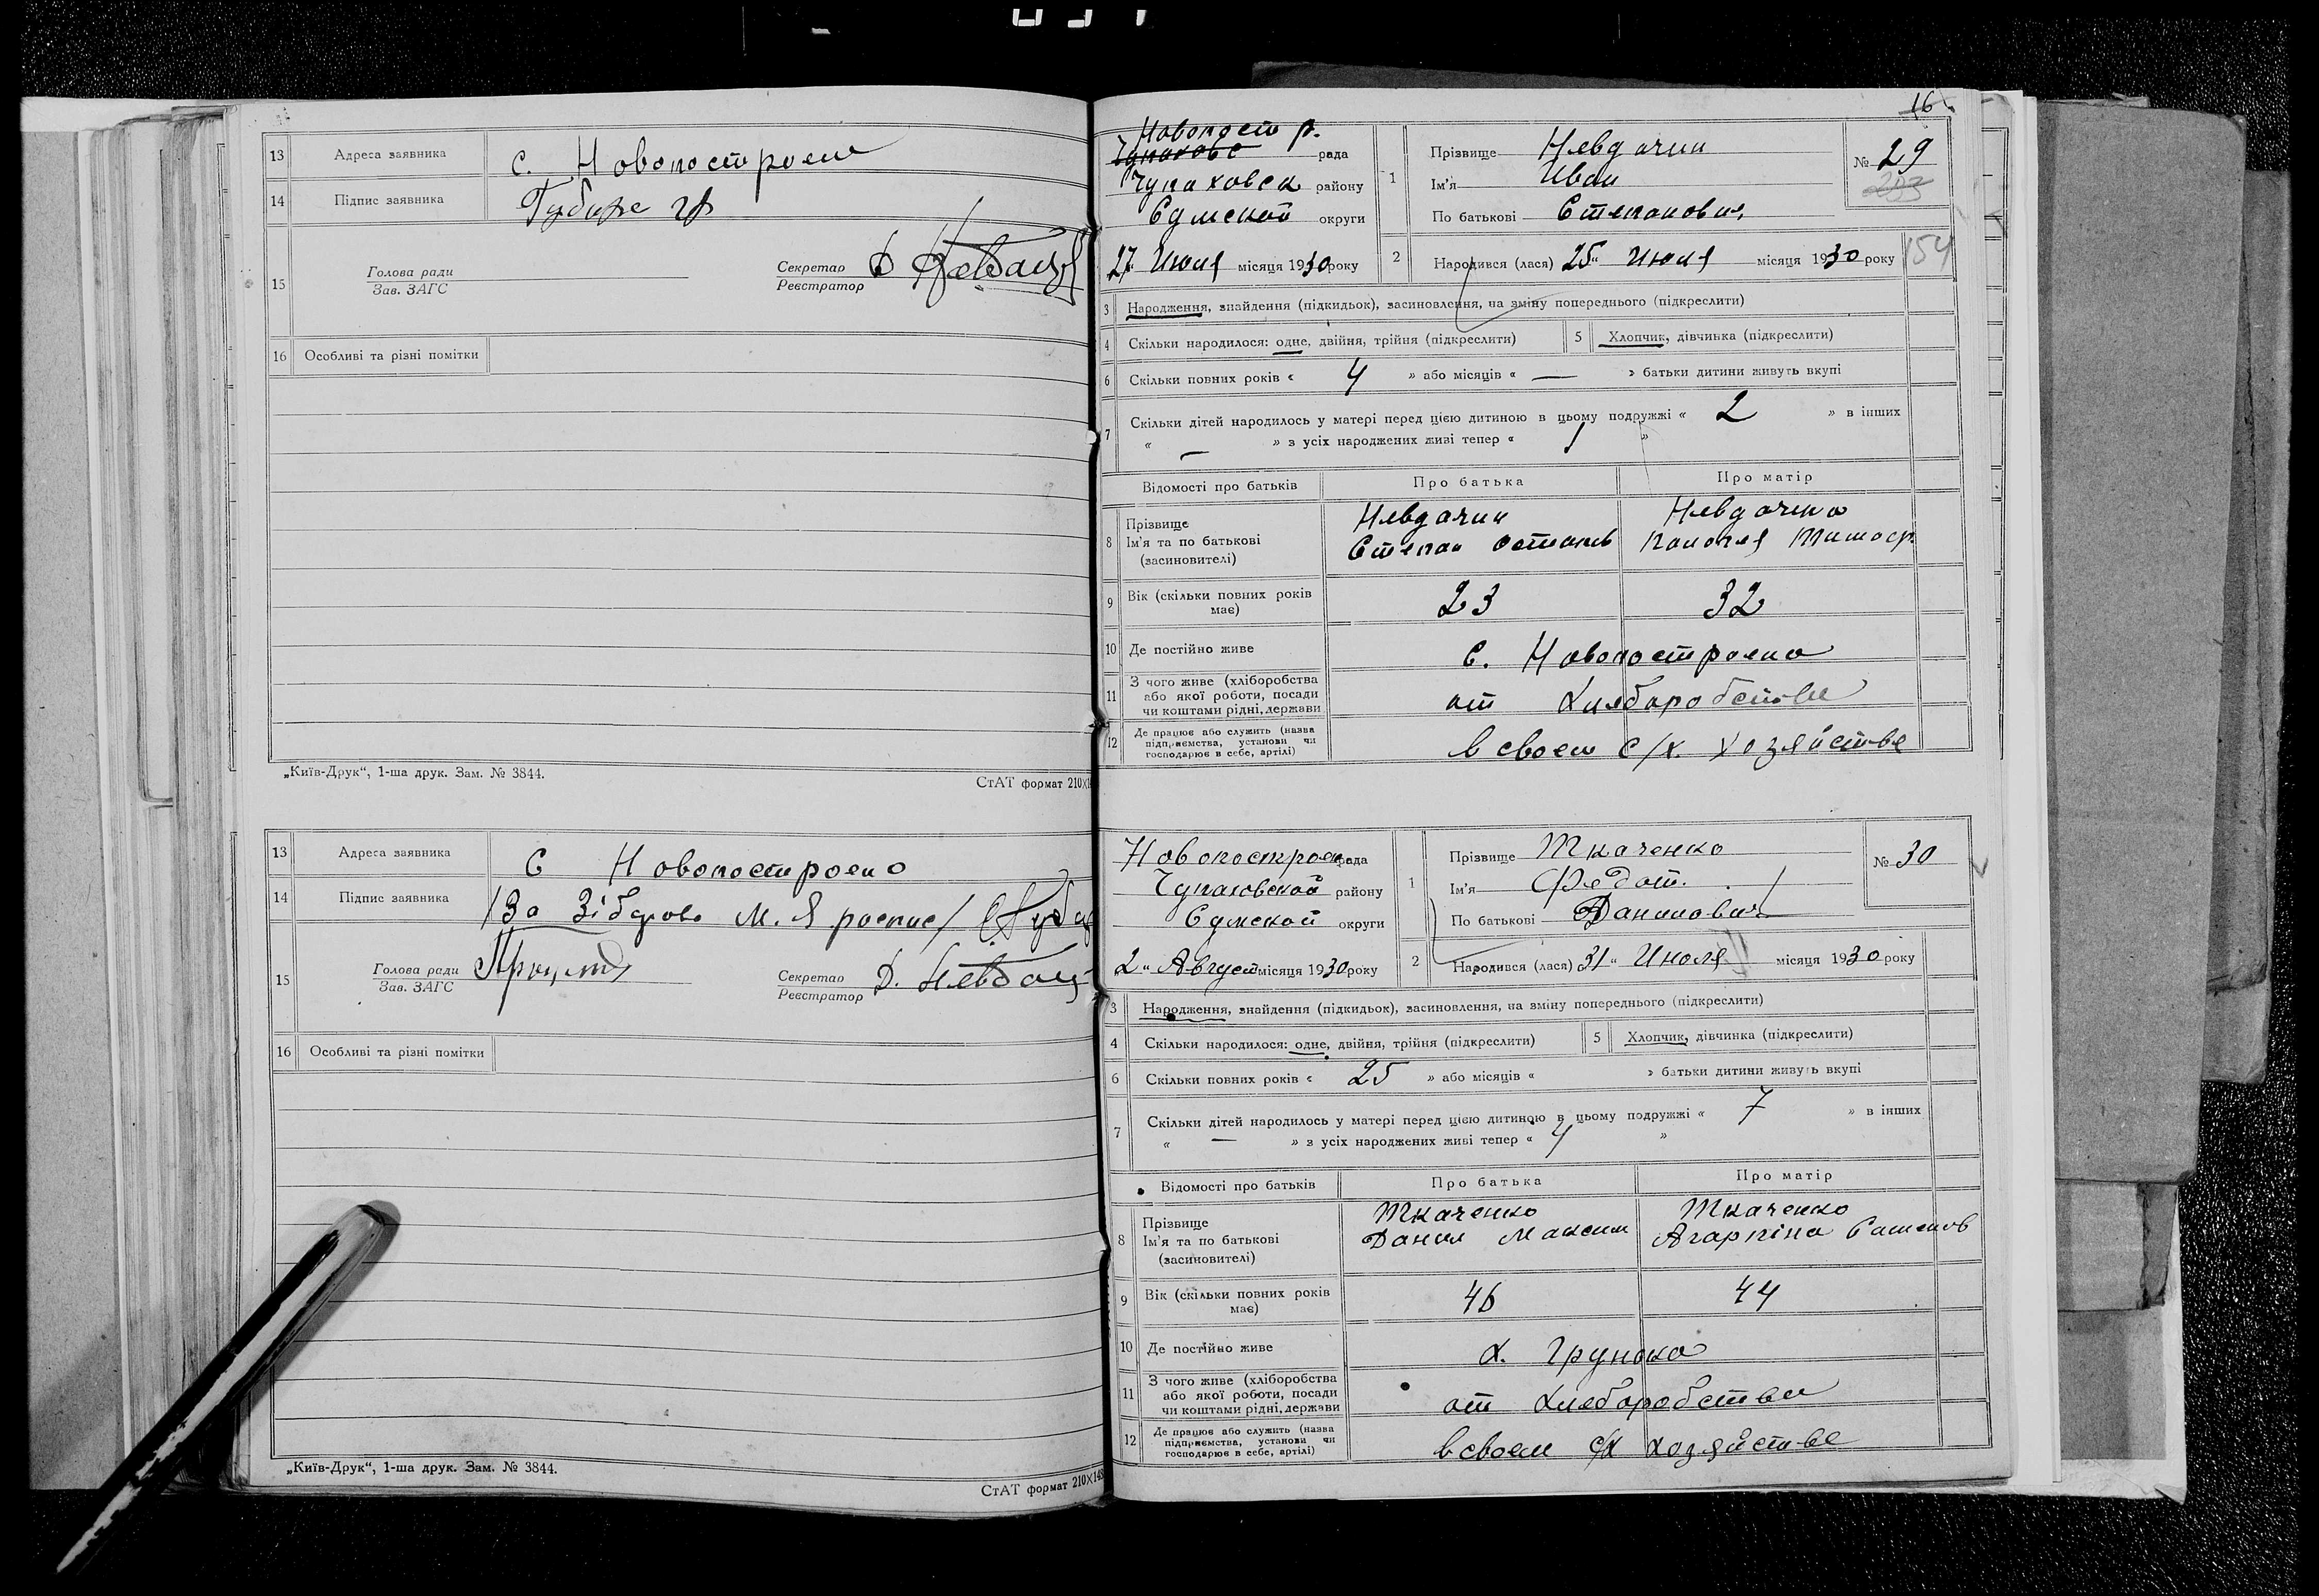 13 Адреса заявника с. Новопостроен
14 Підпис заявника
15 Голова ради
Зав. ЗАГС
Секретар Д
Реєстратор
16 Особливі та різні помітки
„Київ-Друк“, 1-ша друк. Зам. № 3844.
СтАТ формат 210X1
13 Адреса заявника С Новопостроено
14 Підпис заявника /За М. Я роспис/
15 Голова ради
Зав. ЗАГС
Секретар Д.
Реєстратор
16 Особливі та різні помітки
„Київ-Друк“, 1-ша друк. Зам. № 3844.
СтАТ формат 210X148
16
Новопост р.
рада
Чупаховск району
Сумской округи
27 Июля місяця 1930 року
1 Прізвище Невдачин
Ім'я Иван
По батькові Степанович
№ 29
2 Народився (лася) 25" Июля місяця 1930 року
154
3 Народження, знайдення (підкидьок), засиновлення, на зміну попереднього (підкреслити)
4 Скільки народилося: одне, двійня, трійня (підкреслити) 5 Хлопчик, дівчинка (підкреслити)
6 Скільки повних років « 4 » або місяців « — » батьки дитини живуть вкупі
7 Скільки дітей народилось у матері перед цією дитиною в цьому подружжі « 2 » в інших
« — » з усіх народжених живі тепер « 1 »
Відомості про батьків Про батька Про матір
8 Прізвище Невдачин Невдачина
Ім'я та по батькові Степан
(засиновителі)
9 Вік (скільки повних років має) 23 32
10 Де постійно живе с. Новопостроено
11 З чого живе (хліборобства
або якої роботи, посади
чи коштами рідні, держави от
12 Де працює або служить (назва
підприємства, установи чи
господарює в себе, артілі) в своем с/х. хозяйстве
Новопостроен рада
Чупаховской району
Сумской округи
2" Август місяця 1930 року
1 Прізвище Ткаченко
Ім'я Федот.
По батькові Данилович
№ 30
2 Народився (лася) 31" Июля місяця 1930 року
3 Народження, знайдення (підкидьок), засиновлення, на зміну попереднього (підкреслити)
4 Скільки народилося: одне, двійня, трійня (підкреслити) 5 Хлопчик, дівчинка (підкреслити)
6 Скільки повних років « 25 » або місяців « » батьки дитини живуть вкупі
7 Скільки дітей народилось у матері перед цією дитиною в цьому подружжі « 7 » в інших
« — » з усіх народжених живі тепер « 4 »
Відомості про батьків Про батька Про матір
8 Прізвище Ткаченко Ткаченко
Ім'я та по батькові Данил Максим
(засиновителі)
9 Вік (скільки повних років має) 46 44
10 Де постійно живе х. Грунька
11 З чого живе (хліборобства
або якої роботи, посади
чи коштами рідні, держави от
12 Де працює або служить (назва
підприємства, установи чи
господарює в себе, артілі) в своем с/х хозяйстве